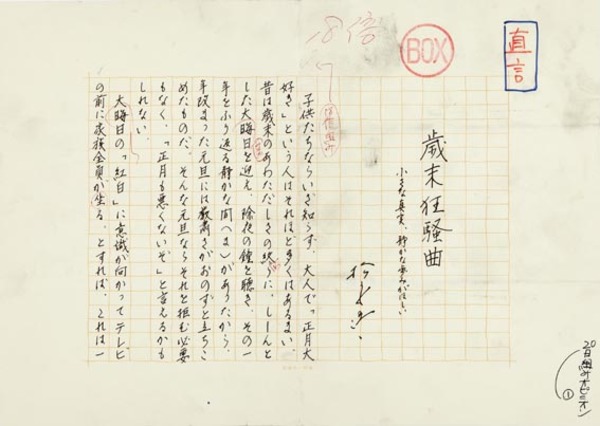 直言
BOX
18倍
歳末狂騒曲
小さな真実、静かな重みがほしい
子供たちならいざ知らず、大人で「正月大
好き」という人はそれほど多くはあるまい。
昔は歳末のあわただしさの終りに、しーんと
した大晦日を迎え、除夜の鐘を聴き、その一
年をふり返る静かな間(ま)があったから、
年改まった元旦には厳粛さがおのずと立ちこ
めたものだ。そんな元旦ならそれを拒む必要
もなく、「正月も悪くないぞ」と言えるかも
しれない。
大晦日の「紅白」に意識が向かってテレビ
の前に家族全員が坐る、とすれば、これは一
20日組みオピニオン
①